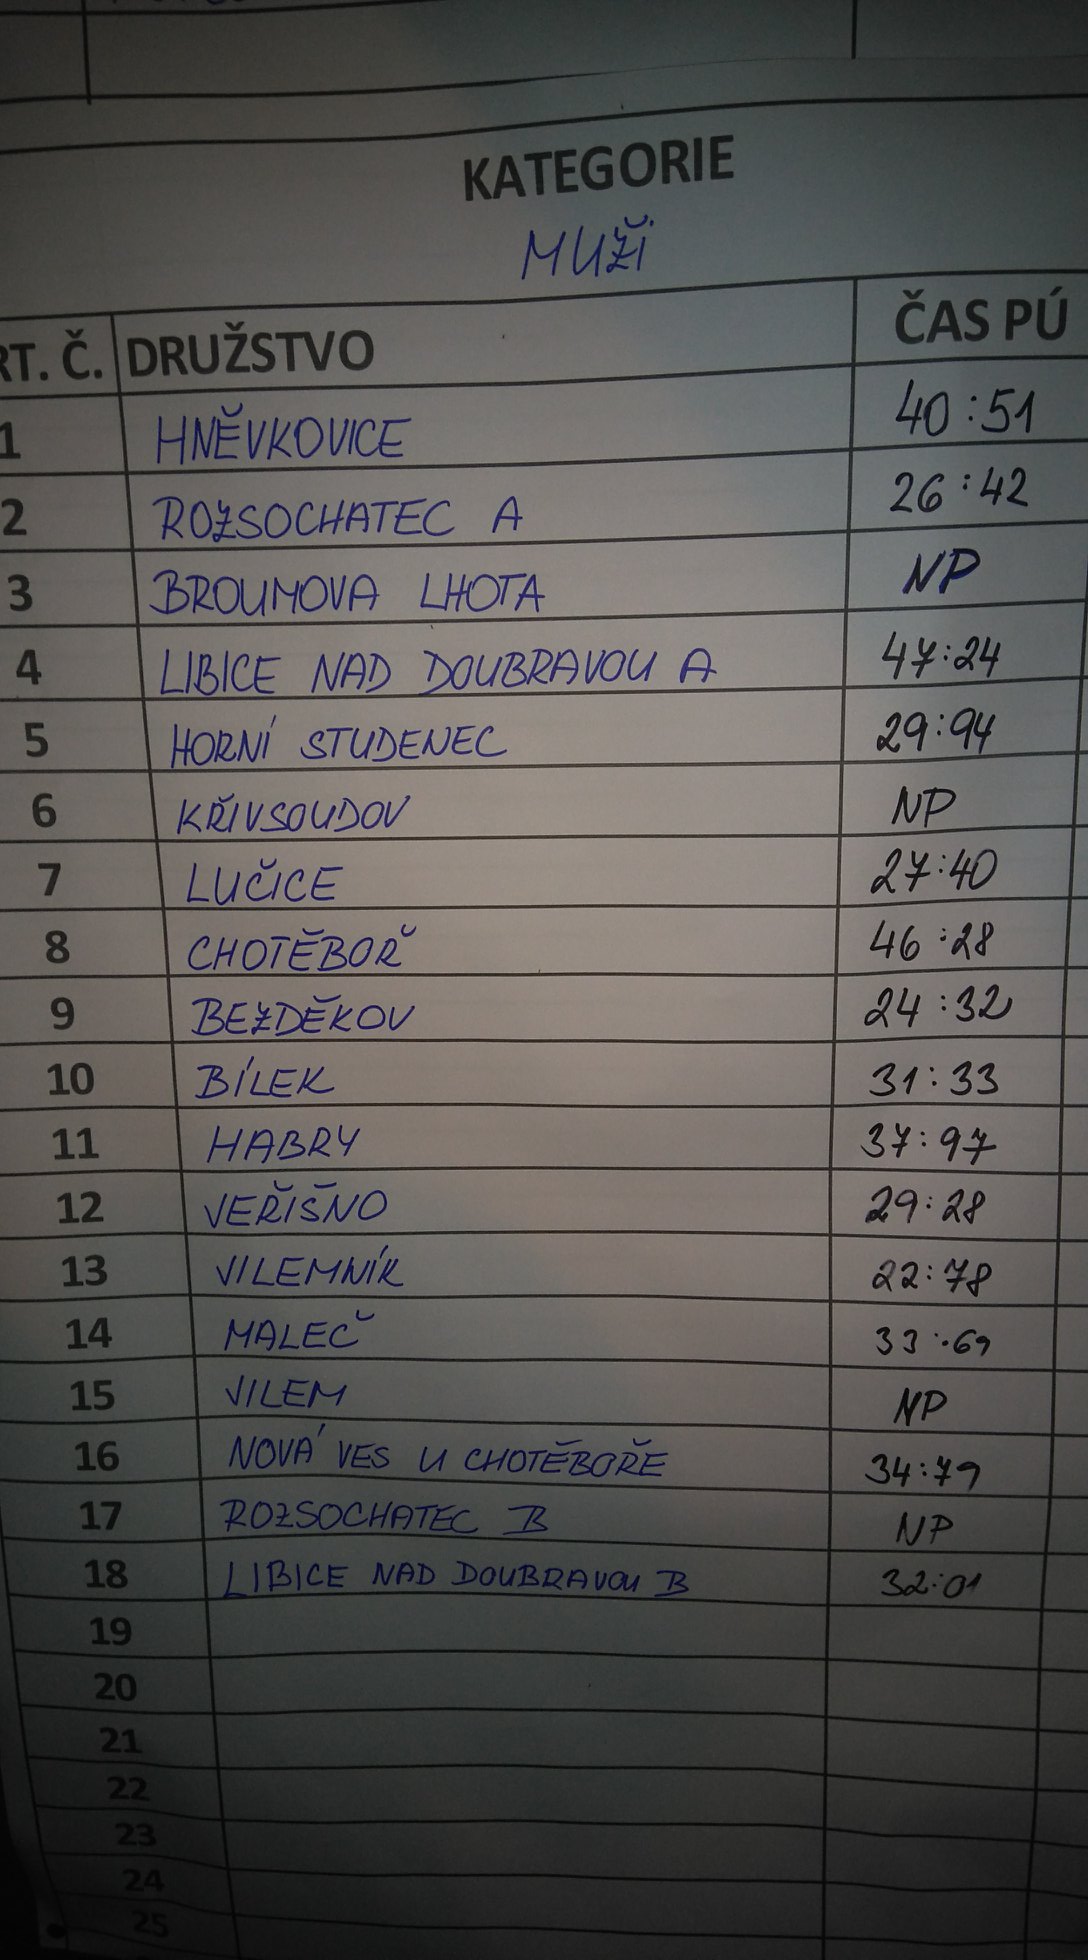 KATEGORIE
MUŽI
RT. Č. DRUŽSTVO ČAS PÚ
1 HNĚVKOVICE 40:51
2 ROZSOCHATEC A 26:42
3 BROUMOVA LHOTA NP
4 LIBICE NAD DOUBRAVOU A 47:24
5 HORNÍ STUDENEC 29:94
6 KŘIVSOUDOV NP
7 LUČICE 27:40
8 CHOTĚBOŘ 46:28
9 BEZDĚKOV 24:32
10 BÍLEK 31:33
11 HABRY 37:97
12 VEŘIŠNO 29:28
13 VILEMNÍK 22:78
14 MALEČ 33:69
15 VILEM NP
16 NOVÁ VES U CHOTĚBOŘE 34:79
17 ROZSOCHATEC B NP
18 LIBICE NAD DOUBRAVOU B 32:01
19
20
21
22
23
24
25